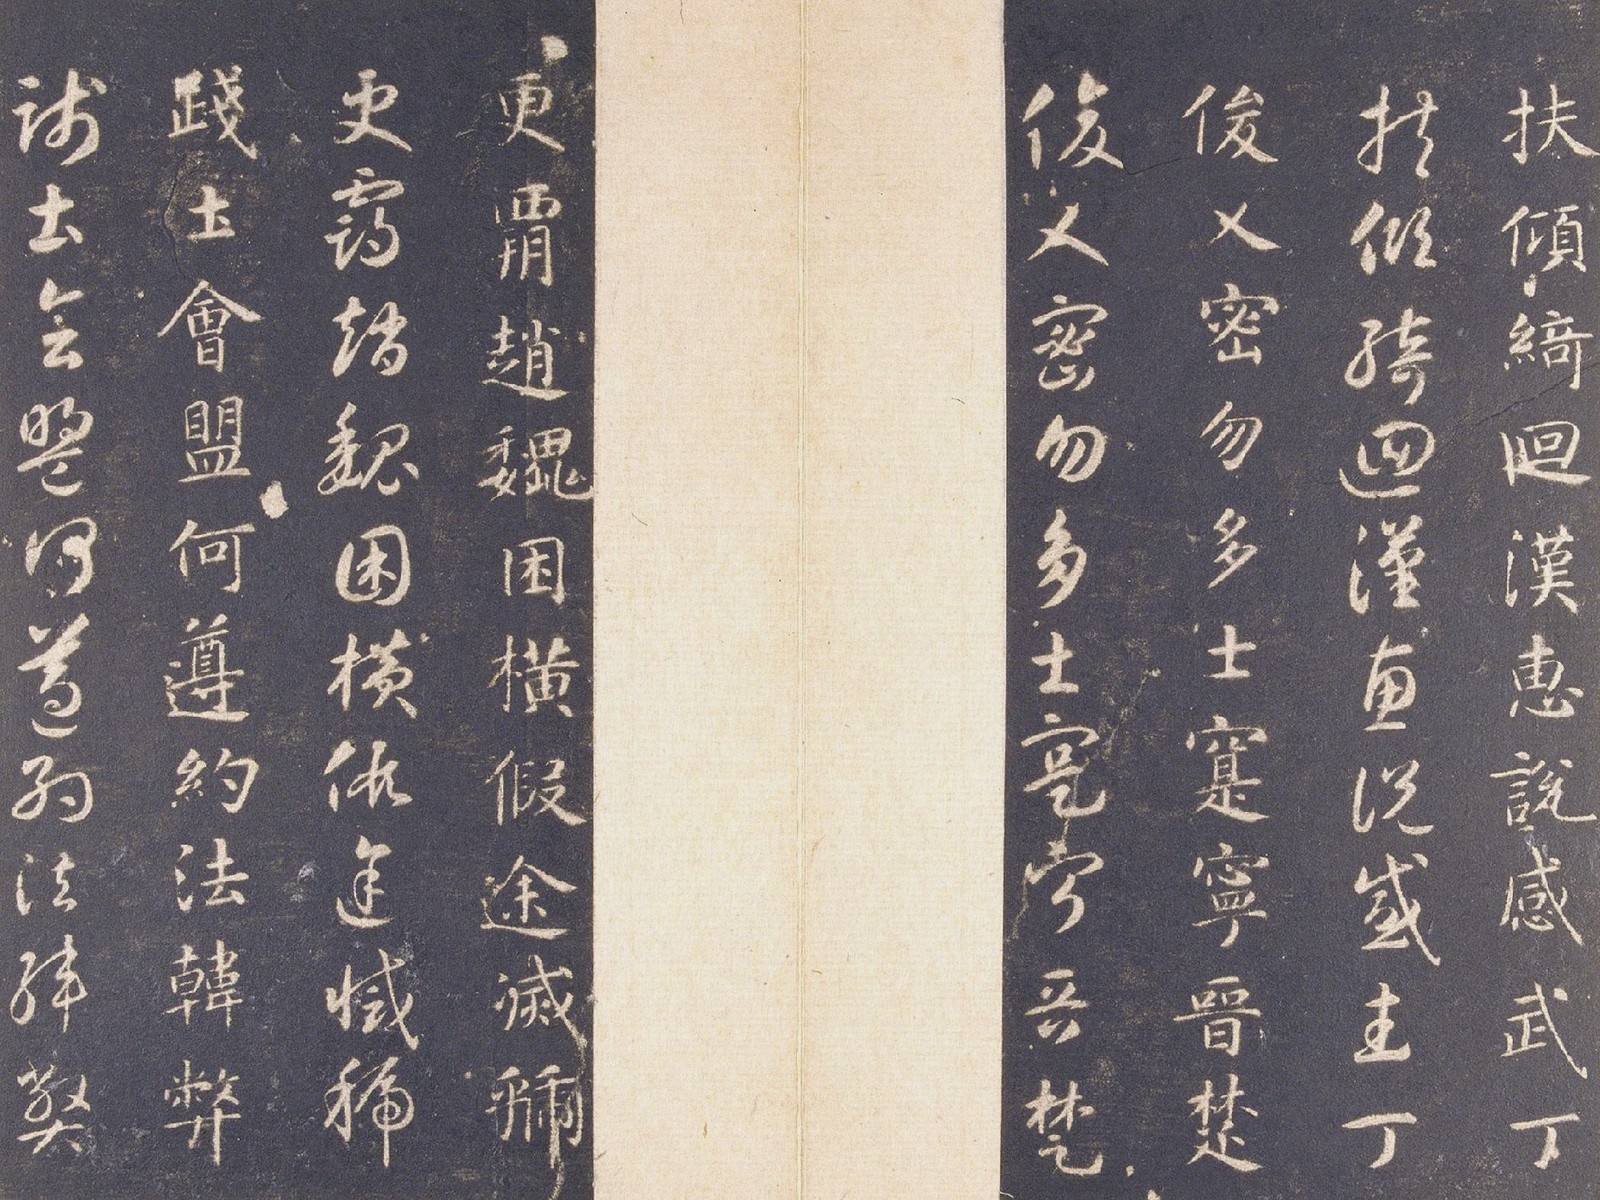 扶傾綺迴漢惠說感武丁
扶傾綺迴漢惠說感武丁
俊乂密勿多士寔寧晉楚
俊乂密勿多士寔寧晉楚
更覇趙魏困橫假途滅虢
更霸趙魏困橫假途滅虢
踐土會盟何遵約法韓弊
踐土會盟何遵約法韓弊